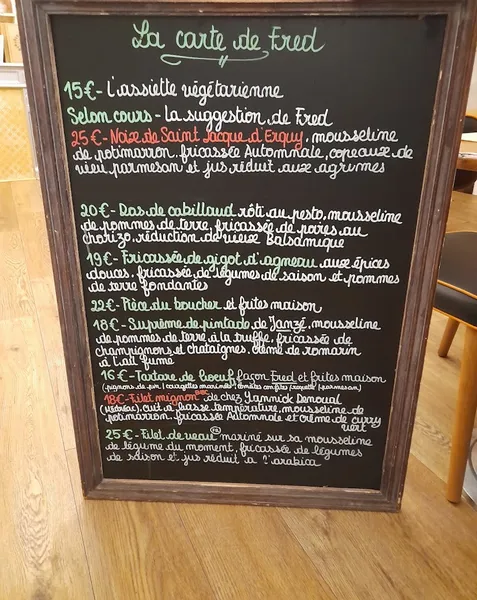 La carte de Fred
15€ - L'assiette végétarienne
Selon cours - La suggestion de Fred
25€ - Noix de Saint Jacque d'Erquy, mousseline
de potimarron, fricassée Automnale, copeaux de
vieu parmesan et jus réduit aux agrumes
20€ - Dos de cabillaud rôti au pesto, mousseline
de pommes de terre, fricassée de poires au
chorizo, réduction de vieux Balsamique
19€ - Fricassée de gigot d'agneau aux épices
douces, fricassée de légumes de saison et pommes
de terre fondantes
22€ - Pièce du boucher et frites maison
18€ - Suprême de pintade de Janzé, mousseline
de pommes de terre à la truffe, fricassée de
champignons et chataignes, crème de romarin
à l'ail fumé
16€ - Tartare de boeuf façon Fred et frites maison
(pignons de pin / courgettes marinées / tomates confites / roquette / parmesan)
18€ - Filet mignon de chez Yannick Denoual
cuit à basse température, mousseline de
potimarron, fricassée Automnale et crème de curry
vert
25€ - Filet de veau mariné sur sa mousseline
de légume du moment, fricassée de légumes
de saison et jus réduit à l'arabica